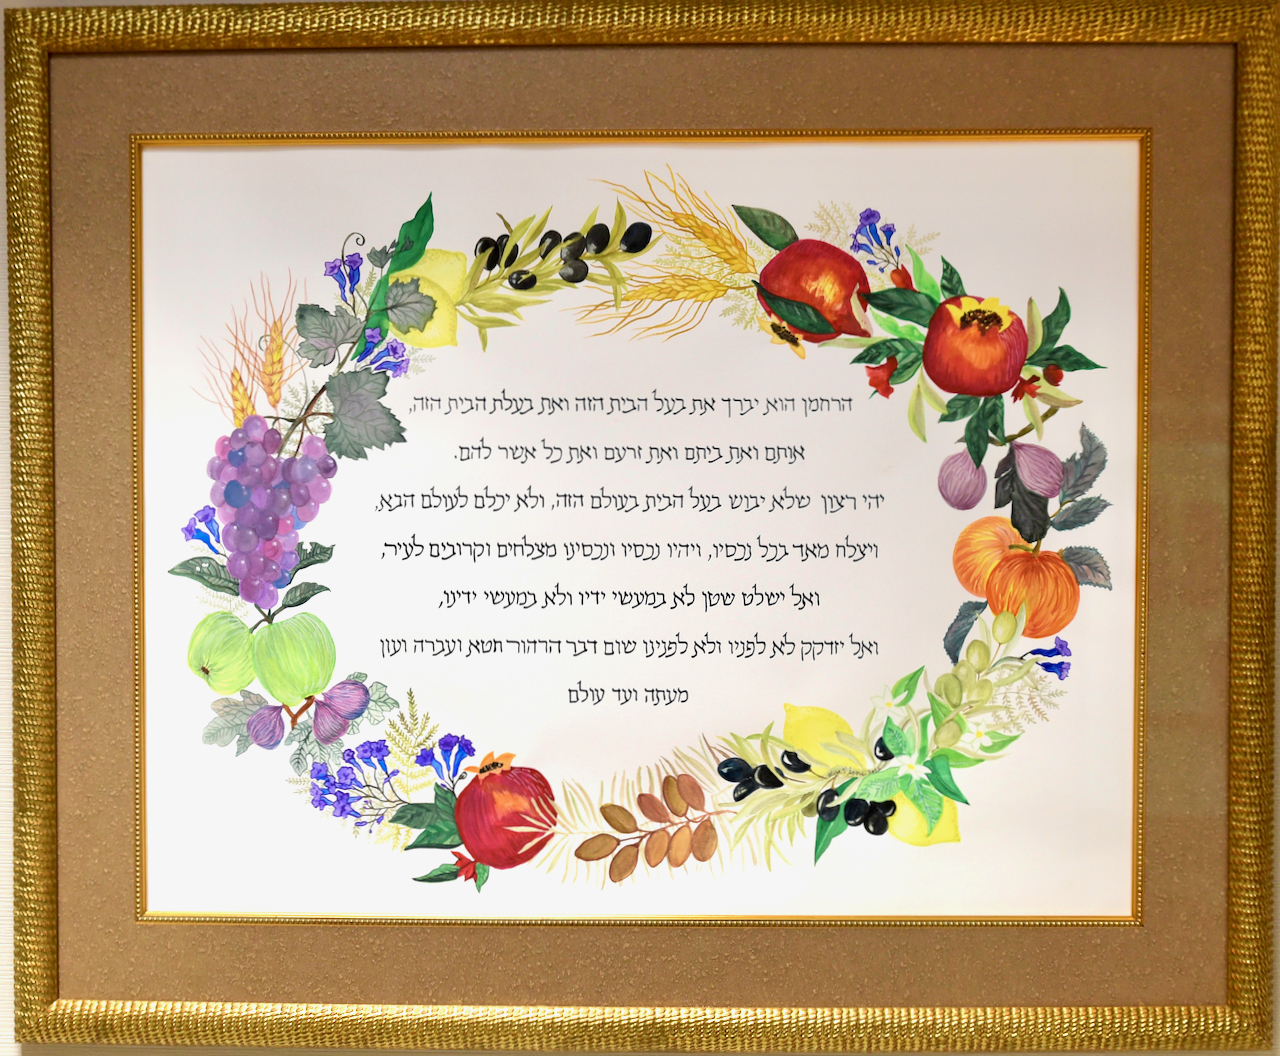 הרחמן הוא יברך את בעל הבית הזה ואת בעלת הבית הזה,
אותם ואת ביתם ואת זרעם ואת כל אשר להם.
יהי רצון שלא יבוש בעל הבית בעולם הזה, ולא יכלם לעולם הבא,
ויצלח מאד בכל נכסיו, ויהיו נכסיו ונכסינו מצלחים וקרובים לעיר,
ואל ישלט שטן לא במעשי ידיו ולא במעשי ידינו,
ואל יזדקק לא לפניו ולא לפנינו שום דבר הרהור חטא ועברה ועון
מעתה ועד עולם